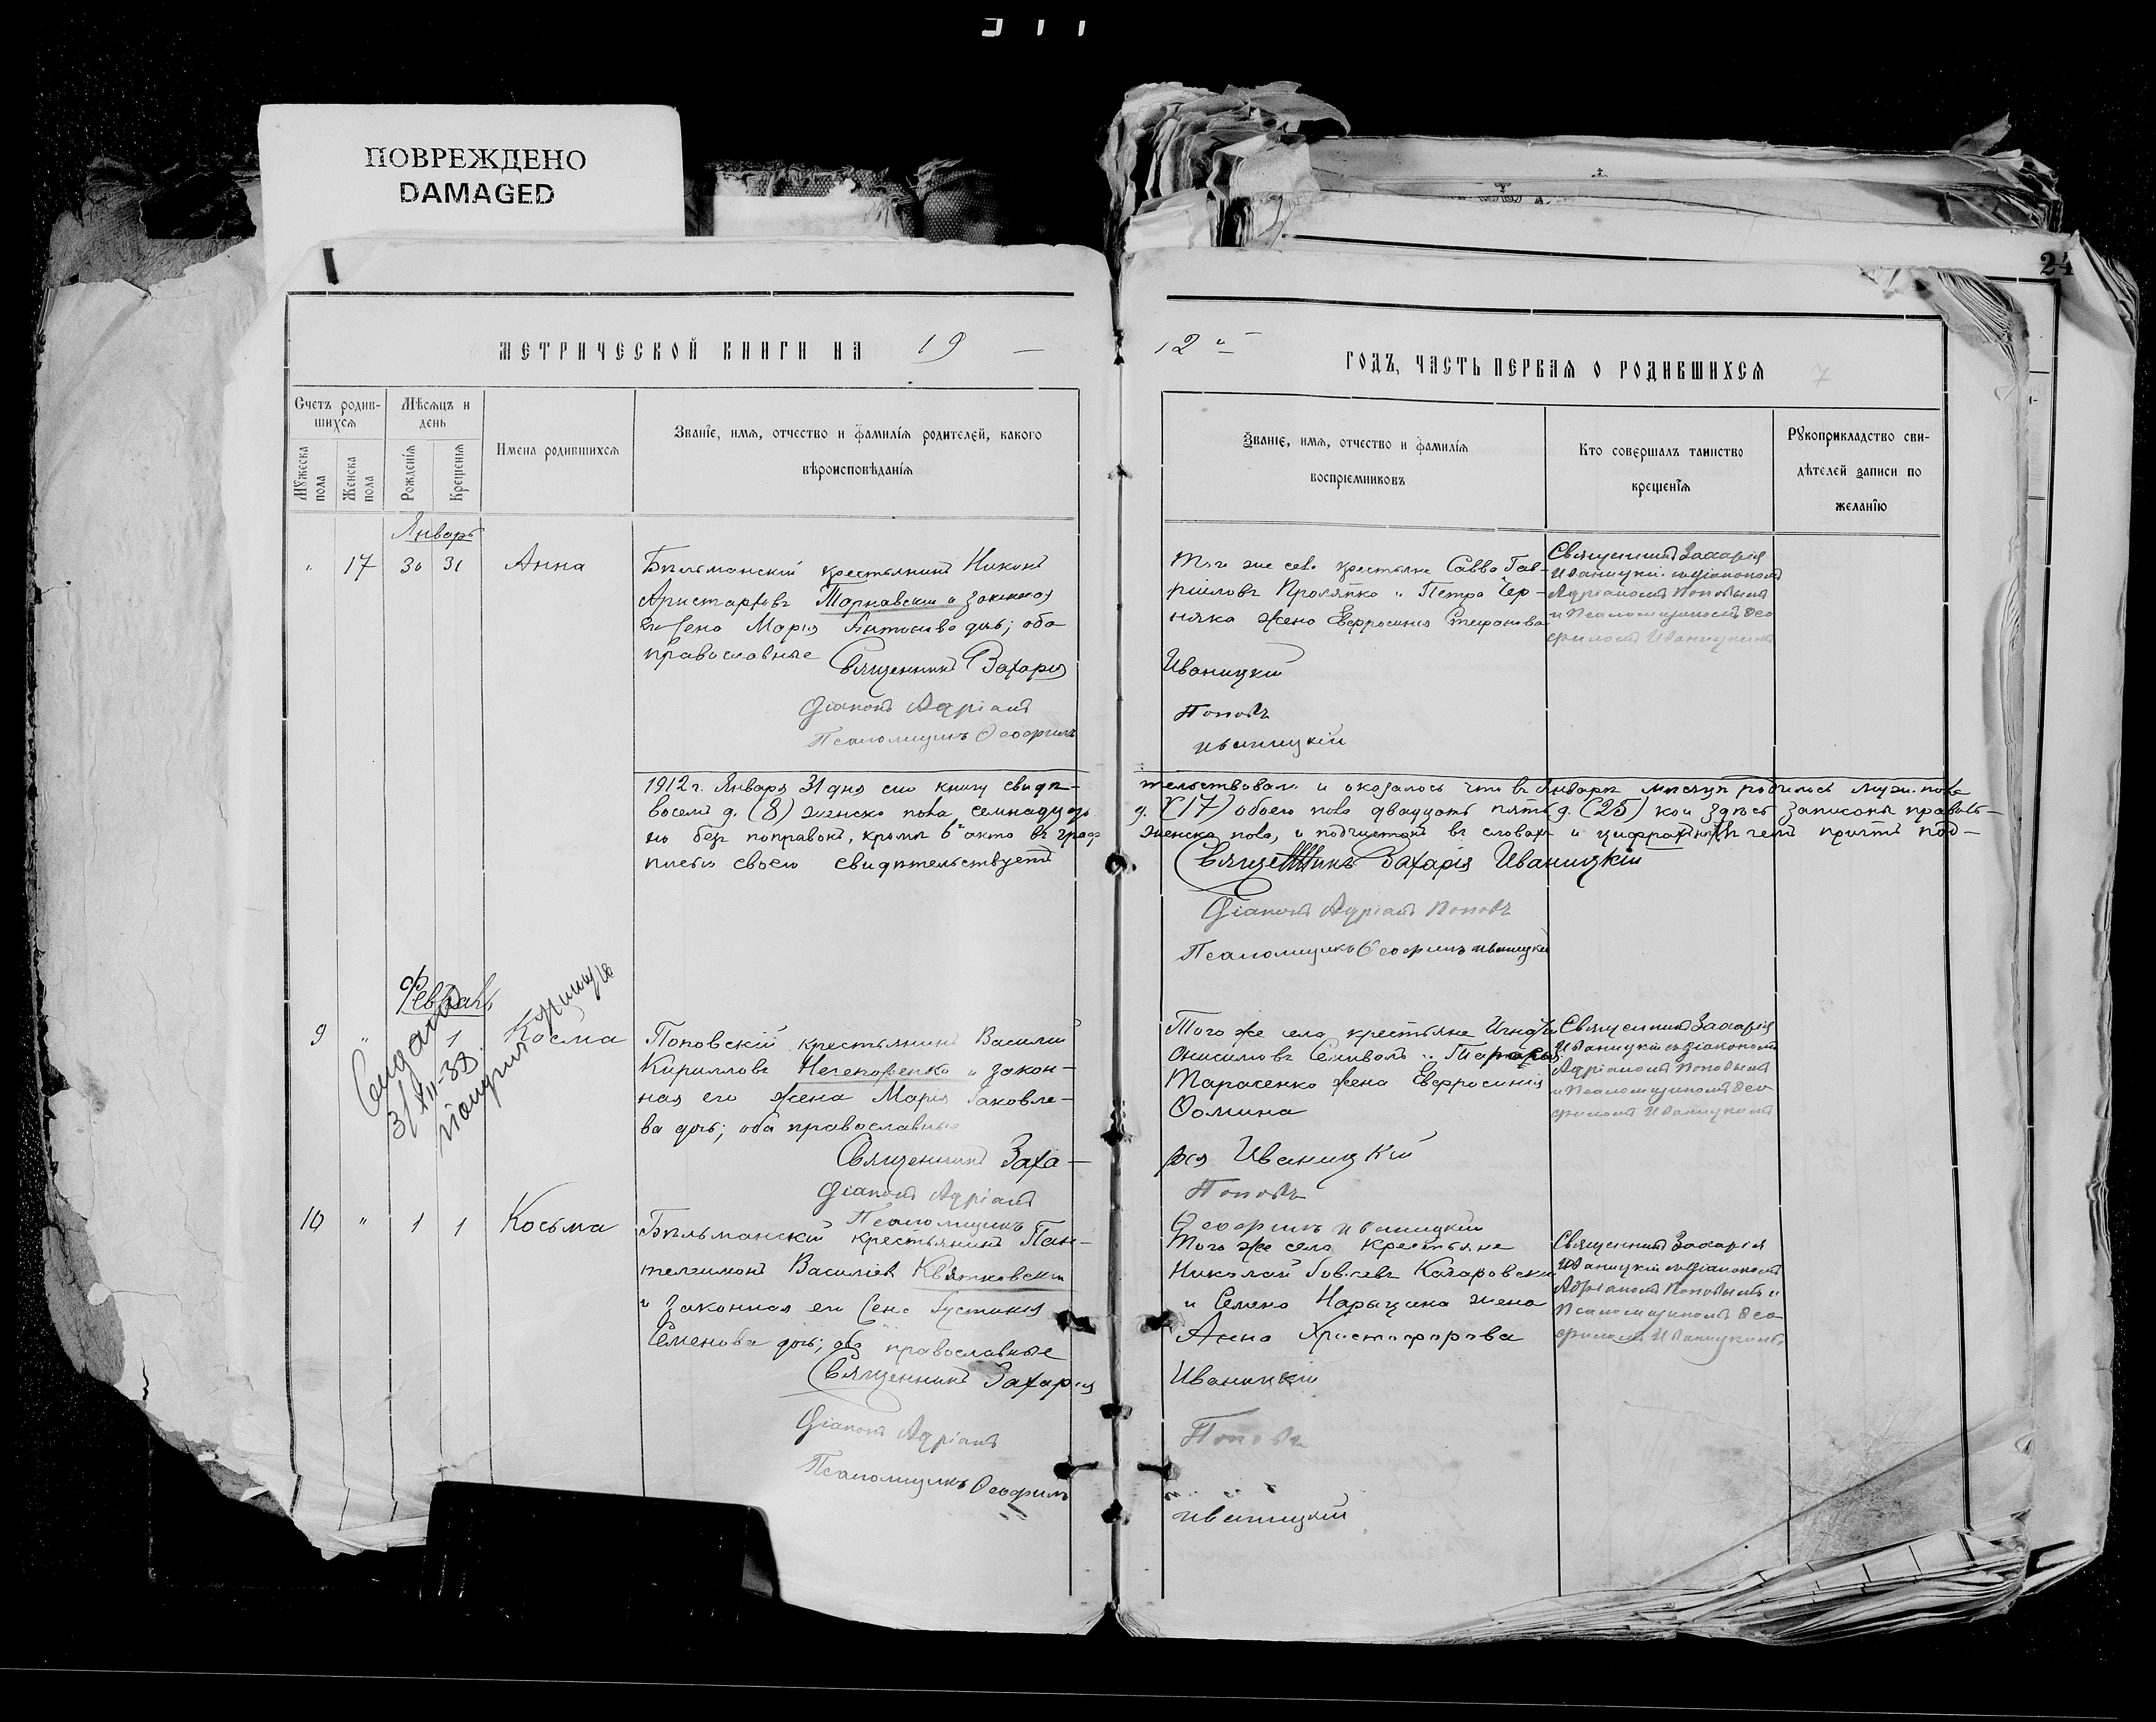 ПОВРЕЖДЕНО
DAMAGED
24
МЕТРИЧЕСКОЙ КНИГИ НА 19
12 ГОДЪ, ЧАСТЬ ПЕРВАЯ О РОДИВШИХСЯ
7
Счетъ родив-
шихся
Мѣсяцъ и
день
Мужеска пола
Женска пола
Рожденія
Крещенія
Имена родившихся
Званіе, имя, отчество и фамилія родителей, какого
вѣроисповѣданія
Званіе, имя, отчество и фамилія
воспріемниковъ
Кто совершалъ таинство
крещенія
Рукоприкладство сви-
дѣтелей записи по
желанію
Январь
" 17 30 31 Анна
Бѣльманскій крестьянинъ Никонъ
Аристарховъ и законная
его жена Марія дочь; оба
православные
Священникъ Захарія
Діаконъ Адріанъ
Псаломщикъ Ѳеофилъ
Того же села крестьяне Савва Гав-
ріиловъ и Петра Чер-
няка жена Евфросинія Стефанова
Иваницкій
Поповъ
Иваницкій
Священникъ Захарія
Иваницкій съ діакономъ
Адріаномъ Поповымъ
и Псаломщикомъ Ѳео
филомъ Иваницкимъ
1912 г. Января 31 дня сію книгу свидѣ-
тельствовали и оказалось что въ Январѣ мѣсяцѣ родилось муж. пола
восемь д. (8) женска пола семнадцать
д. (17) обоего пола двадцать пять д. (25) кои здѣсь записаны правиль-
но безъ поправокъ, кромѣ 6 акта въ графѣ
женска пола, и подчистокъ въ словахъ и цифрахъ въ чемъ причтъ под-
писью своею свидѣтельствуетъ
Священникъ Захарія Иваницкій
Діаконъ Адріанъ Поповъ
Псаломщикъ Ѳеофилъ Иваницкій
Февраль
9 " 1 Косма
3/XII-38.
Поповскій крестьянинъ Василій
Кирилловъ Нечепоренко и закон-
ная его жена Марія Іаковле-
ва дочь; оба православные
Священникъ Заха-
Діаконъ Адріанъ
Псаломщикъ
Того же села крестьяне
Онисимовъ и
Тарасенко жена Евфросинія
Ѳомина
рія Иваницкій
Поповъ
Ѳеофилъ Иваницкій
Священникъ Захарія
Иваницкій съ діакономъ
Адріаномъ Поповымъ
и Псаломщикомъ Ѳео
филомъ Иваницкимъ
10 " 1 1 Косьма
Бѣльманскій крестьянинъ Пан-
телеимонъ Василіевъ Квятковскій
и законная его жена Іустинія
Семенова дочь; оба православные
Священникъ Захарія
Діаконъ Адріанъ
Псаломщикъ Ѳеофилъ
Того же села крестьяне
Николай
и Семена жена
Анна Христофорова
Иваницкій
Поповъ
Иваницкій
Священникъ Захарія
Иваницкій съ діакономъ
Адріаномъ Поповымъ и
Псаломщикомъ Ѳео
филомъ Иваницкимъ